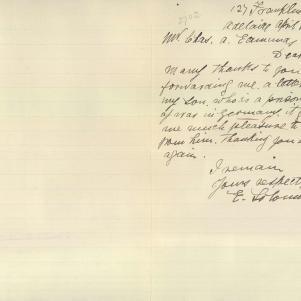 2902
127 Franklin
Adelaide April
Mr Chas. A. Edmunds
Dear
Many thanks to you
forwarding me a letter
my son. who is a prison
of war in Germany. it g
me much pleasure to
from him. Thanking you
again.
I remain
Yours respect
E. Solomo